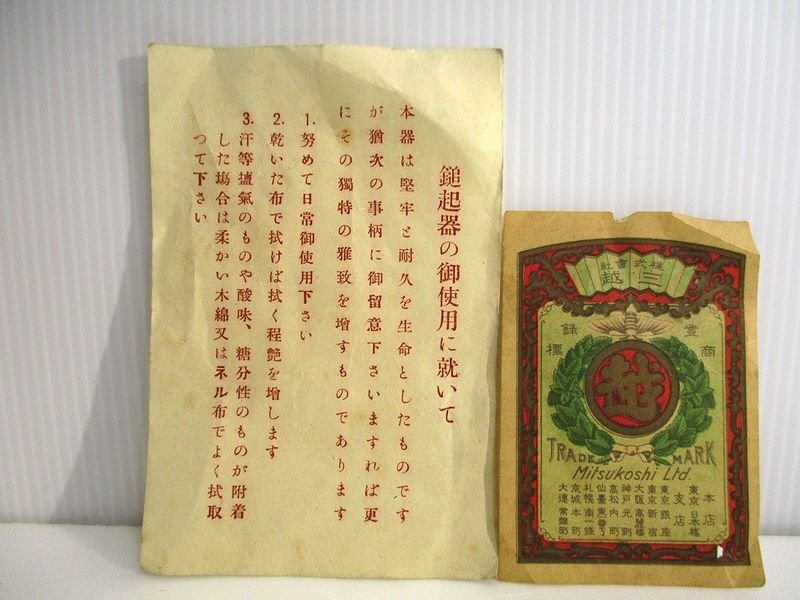 鎚起器の御使用に就いて
本器は堅牢と耐久を生命としたものです
が猶次の事柄に御留意下さいますれば更
にその獨特の雅致を増すものであります
1. 努めて日常御使用下さい
2. 乾いた布で拭けば拭く程艶を増します
3. 汗等塩氣のものや酸味、糖分性のものが附着
した場合は柔かい木綿又はネル布でよく拭取
つて下さい
株式會社
三越
登錄
商標
TRADE MARK
Mitsukoshi Ltd.
本店
東京 日本橋
支店
東京 銀座
東京 新宿
大阪 高麗橋
神戸 元町
高松 内町
仙臺 東一番丁
札幌 南一條
京城 本町
大連 常盤町